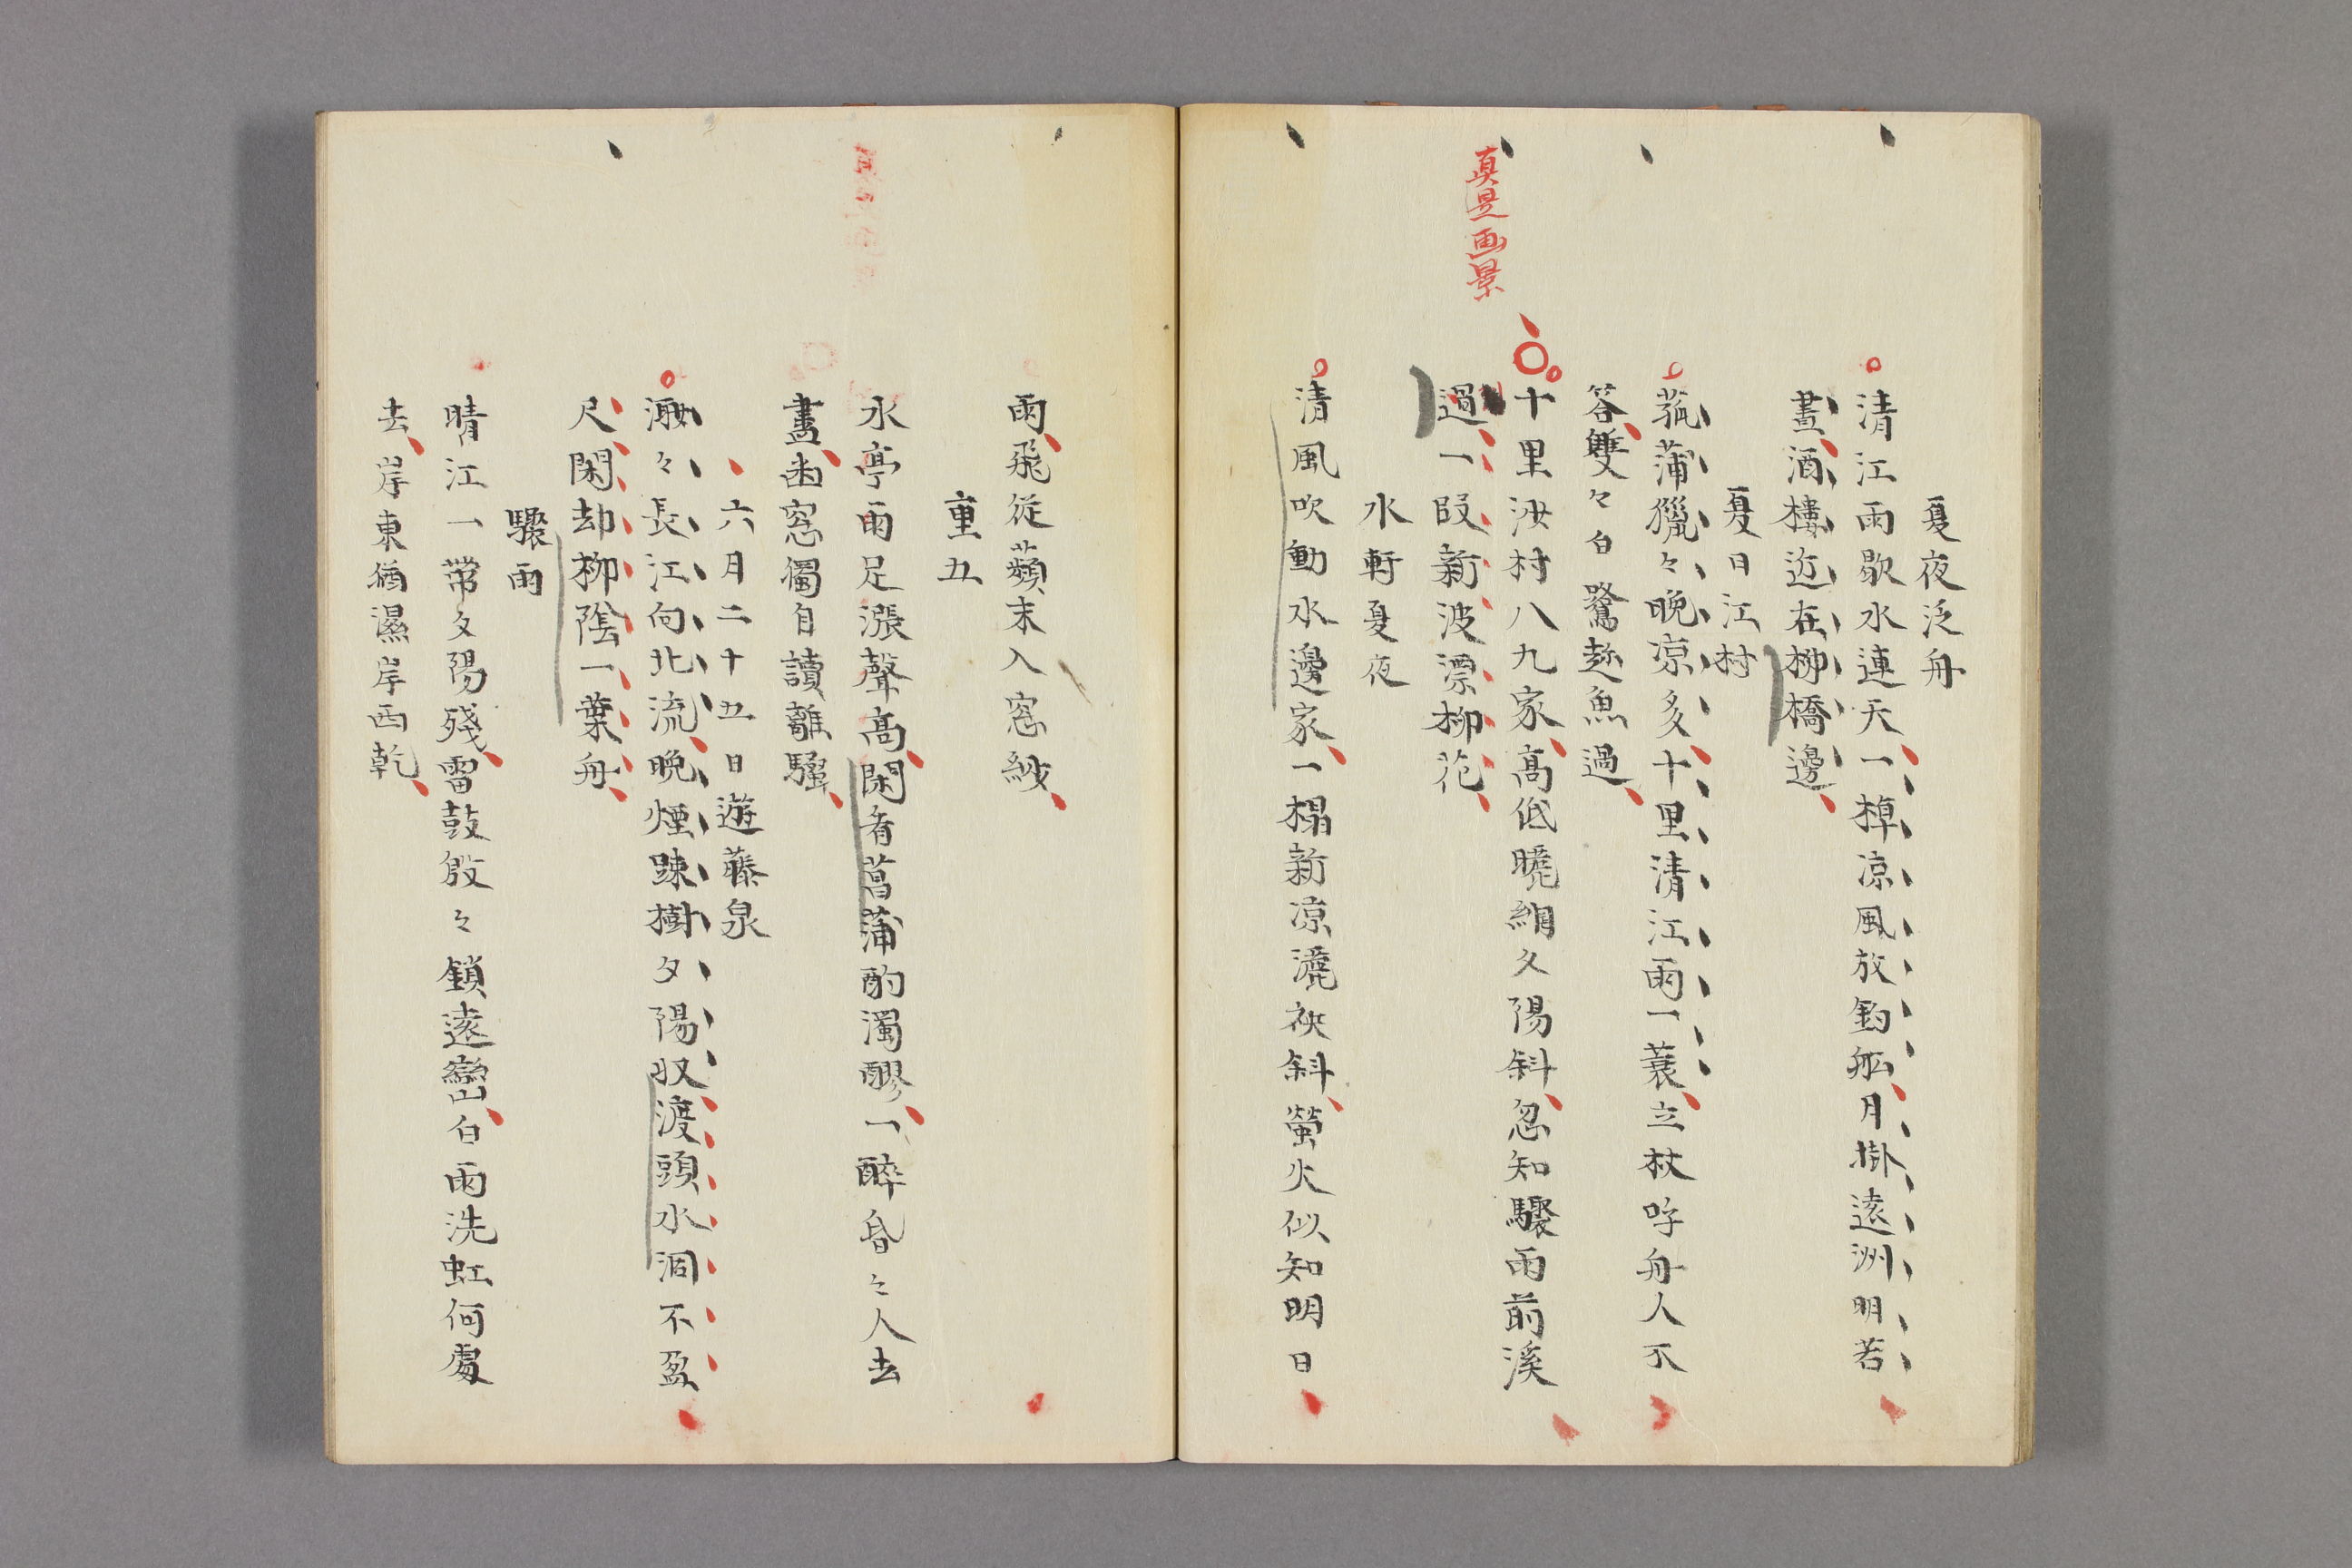 夏夜泛舟
清江雨歇水連天一棹凉風放釣舩月掛遠洲明若
晝酒樓近在柳橋邊
夏日江村
菰蒲獵々晩凉多十里清江雨一蓑立杖呼舟人不
答雙々白鷺趁魚過
真是画景
十里沙村八九家高低曉網夕陽斜忽知驟雨前溪
過一段新波漂柳花
水軒夏夜
清風吹動水邊家一榻新凉灑袂斜螢火似知明日
雨飛従蘋末入窓紗
重五
水亭雨足漲聲高閑看菖蒲酌濁醪一醉昏々人去
盡幽窓獨自讀離騒
六月二十五日遊藤泉
溵々長江向北流晩煙踈樹夕陽収渡頭水涸不盈
尺閑却柳陰一葉舟
驟雨
晴江一帶夕陽殘雷鼓殷々鎖遠巒白雨洗虹何處
去岸東猶濕岸西乾